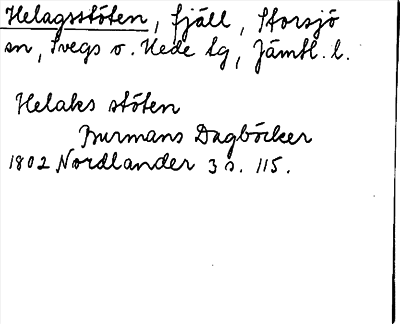 Helagsstöten, fjäll, Storsjö
sn, Svegs o. Hede tg, Jämtl. l.
Helaks stöten
Burmans Dagböcker
1802 Nordlander 3 s. 115.